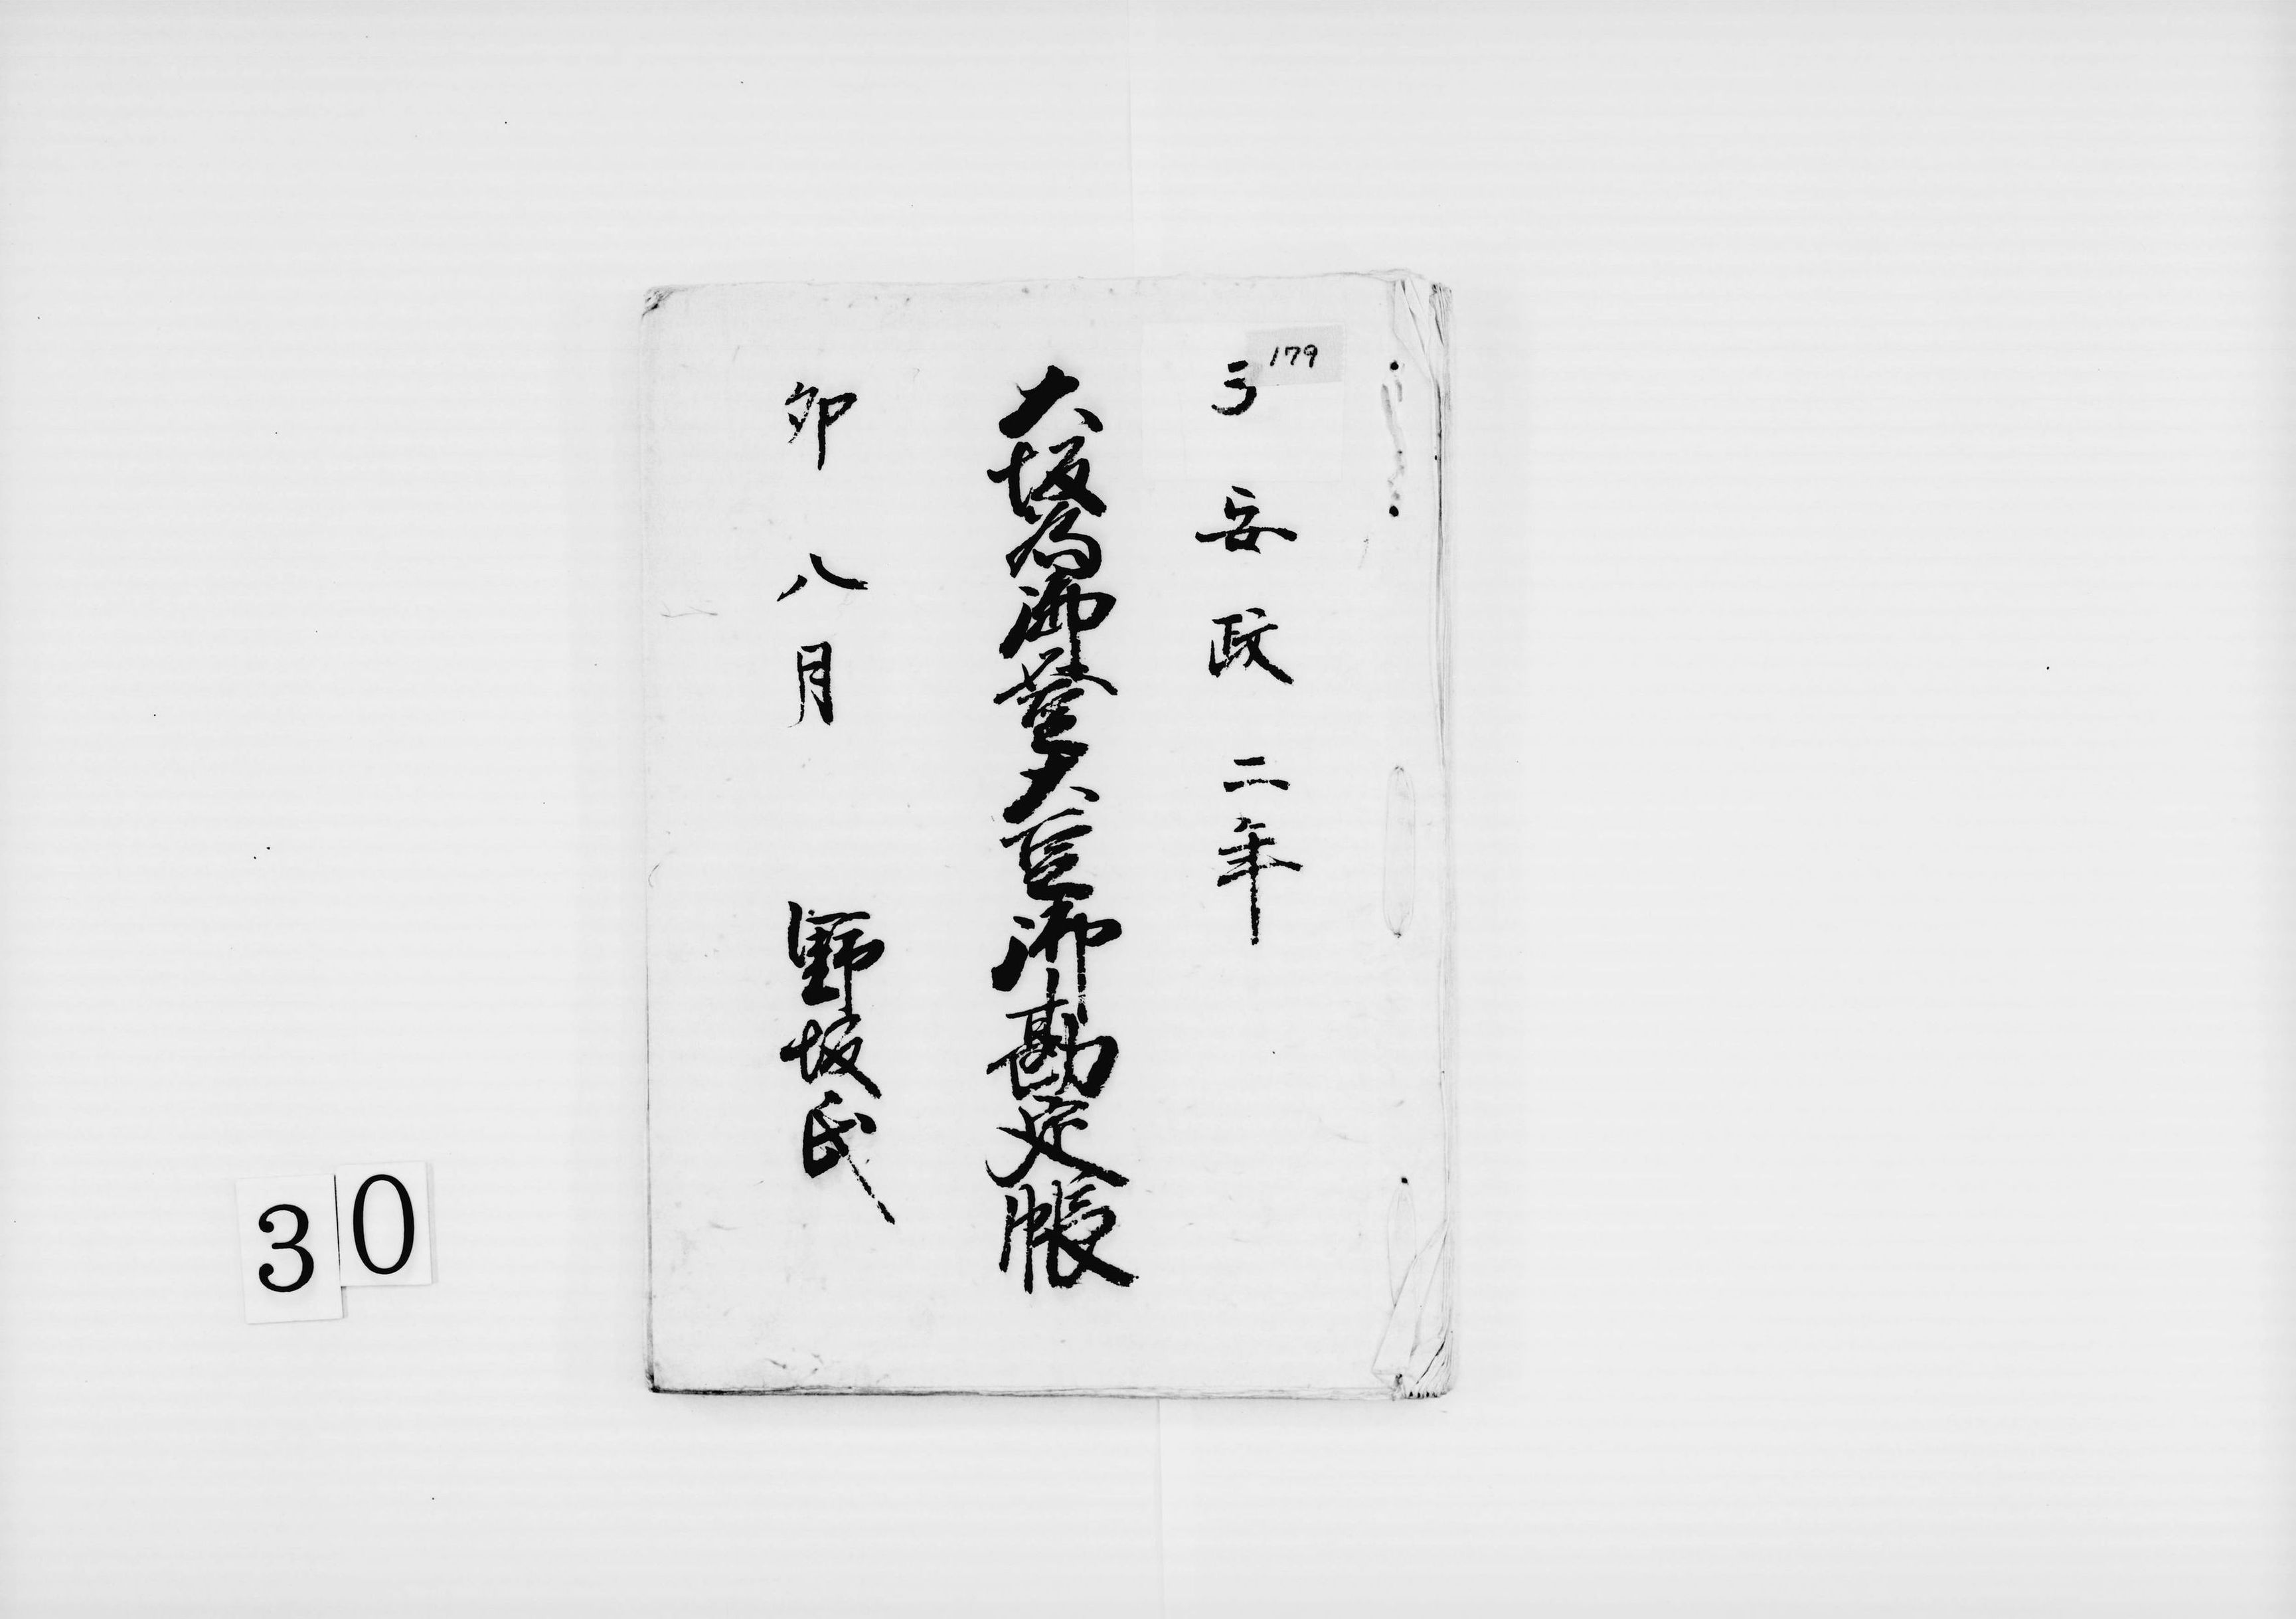 179
ろ
安政二年
大坂為御登大豆御勘定帳
卯八月 野坂氏
30